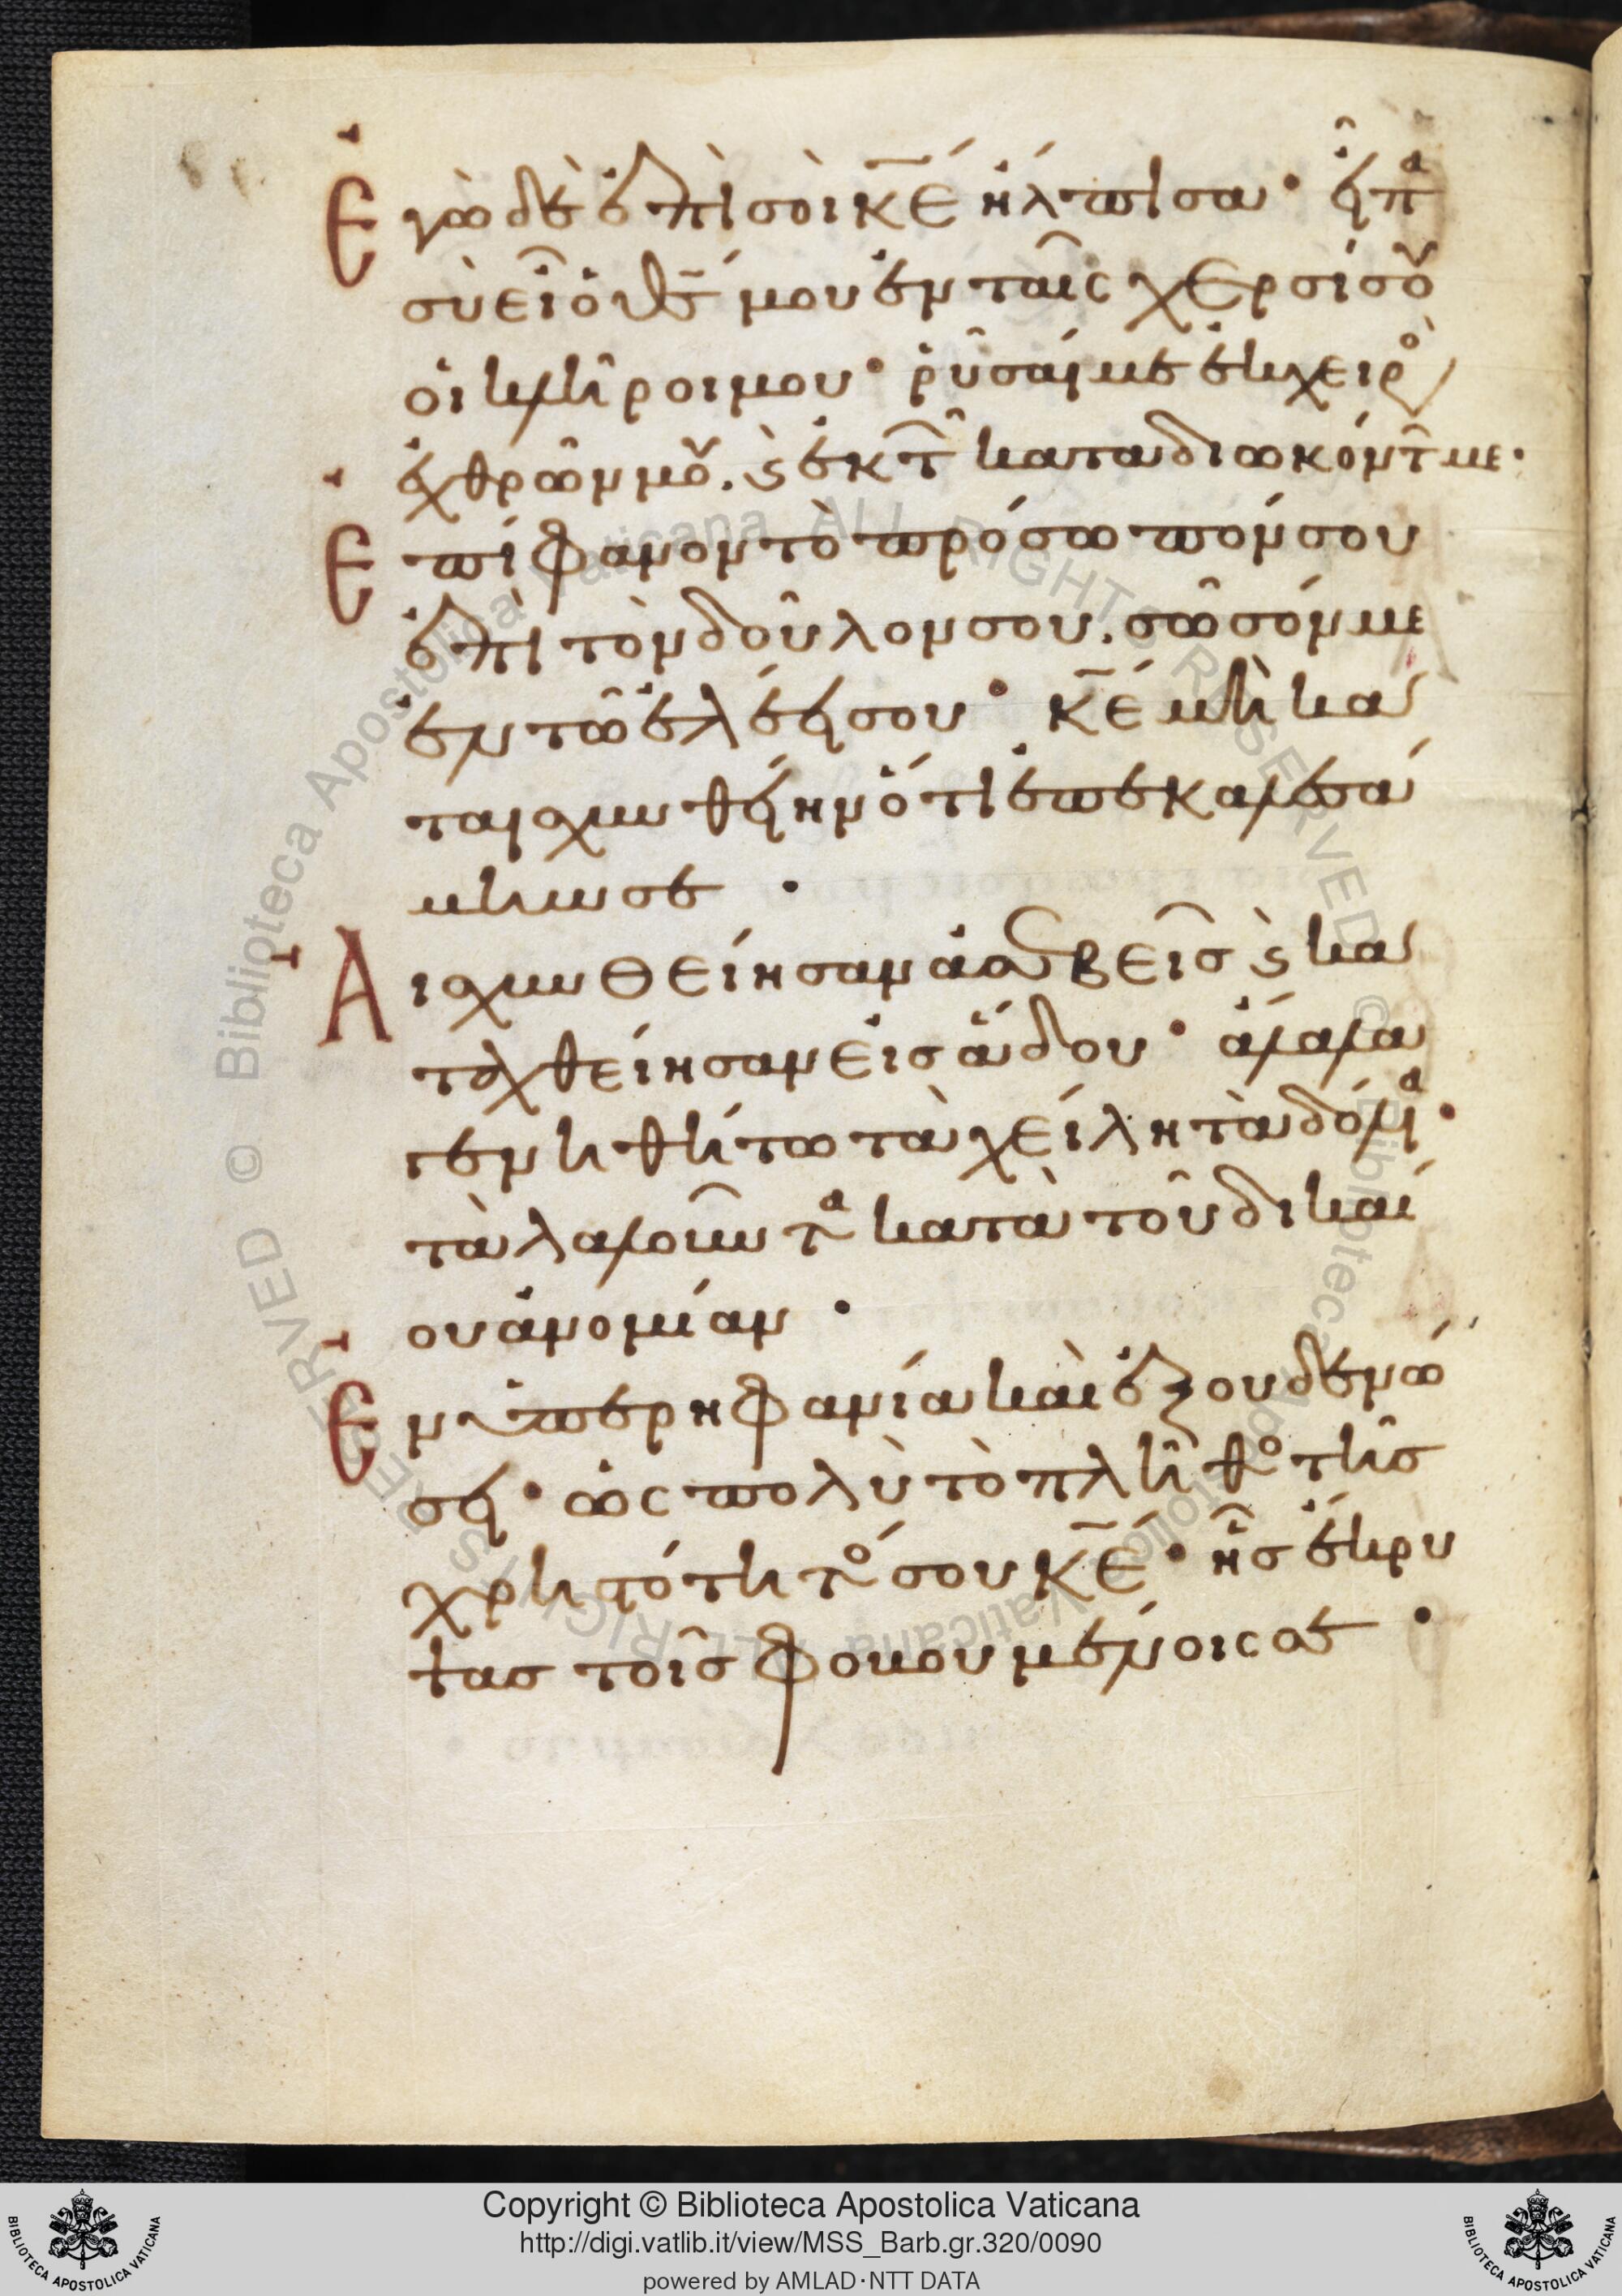 Ἐγὼ δὲ ἐπὶ σοὶ κ̅ε̅ ἤλπισα· εἶπᾰ
σὺ εἶ ὁ θ̅ς̅ μου ἐν ταῖς χερσί σου
οἱ κλῆροί μου· ῥῦσαί με ἐκ χειρὸς
ἐχθρῶν μου. ϗ ἐκ τ̅ῶ καταδιωκόντ̅ με·
Ἐπίφανον τὸ πρόσωπόν σου
ἐπὶ τὸν δοῦλον σου. σῶσόν με
ἐν τῷ ἐλέει σου· κ̅ε̅ μὴ κα
ταισχυνθείην ὅτι ἐπεκαλεσά
μην σε·
Αἰσχυνθείησαν ἀσεβεῖς ϗ κα
ταχθείησαν εἰς ᾅδου· ἄλαλα
γενηθήτω τὰ χείλη τὰ δόλια·
τὰ λαλοῦντα κατὰ τοῦ δικαί
ου ἀνομίαν·
Ἐν ὑπερηφανία καὶ ἐξουδενώ
σει· ὡς πολὺ τὸ πλῆθος τῆς
χρηστότητός σου κ̅ε̅· ἧς ἔκρυ
ψας τοῖς φοβουμένοις σε·
Copyright © Biblioteca Apostolica Vaticana
http://digi.vatlib.it/view/MSS_Barb.gr.320/0090
powered by AMLAD·NTT DATA